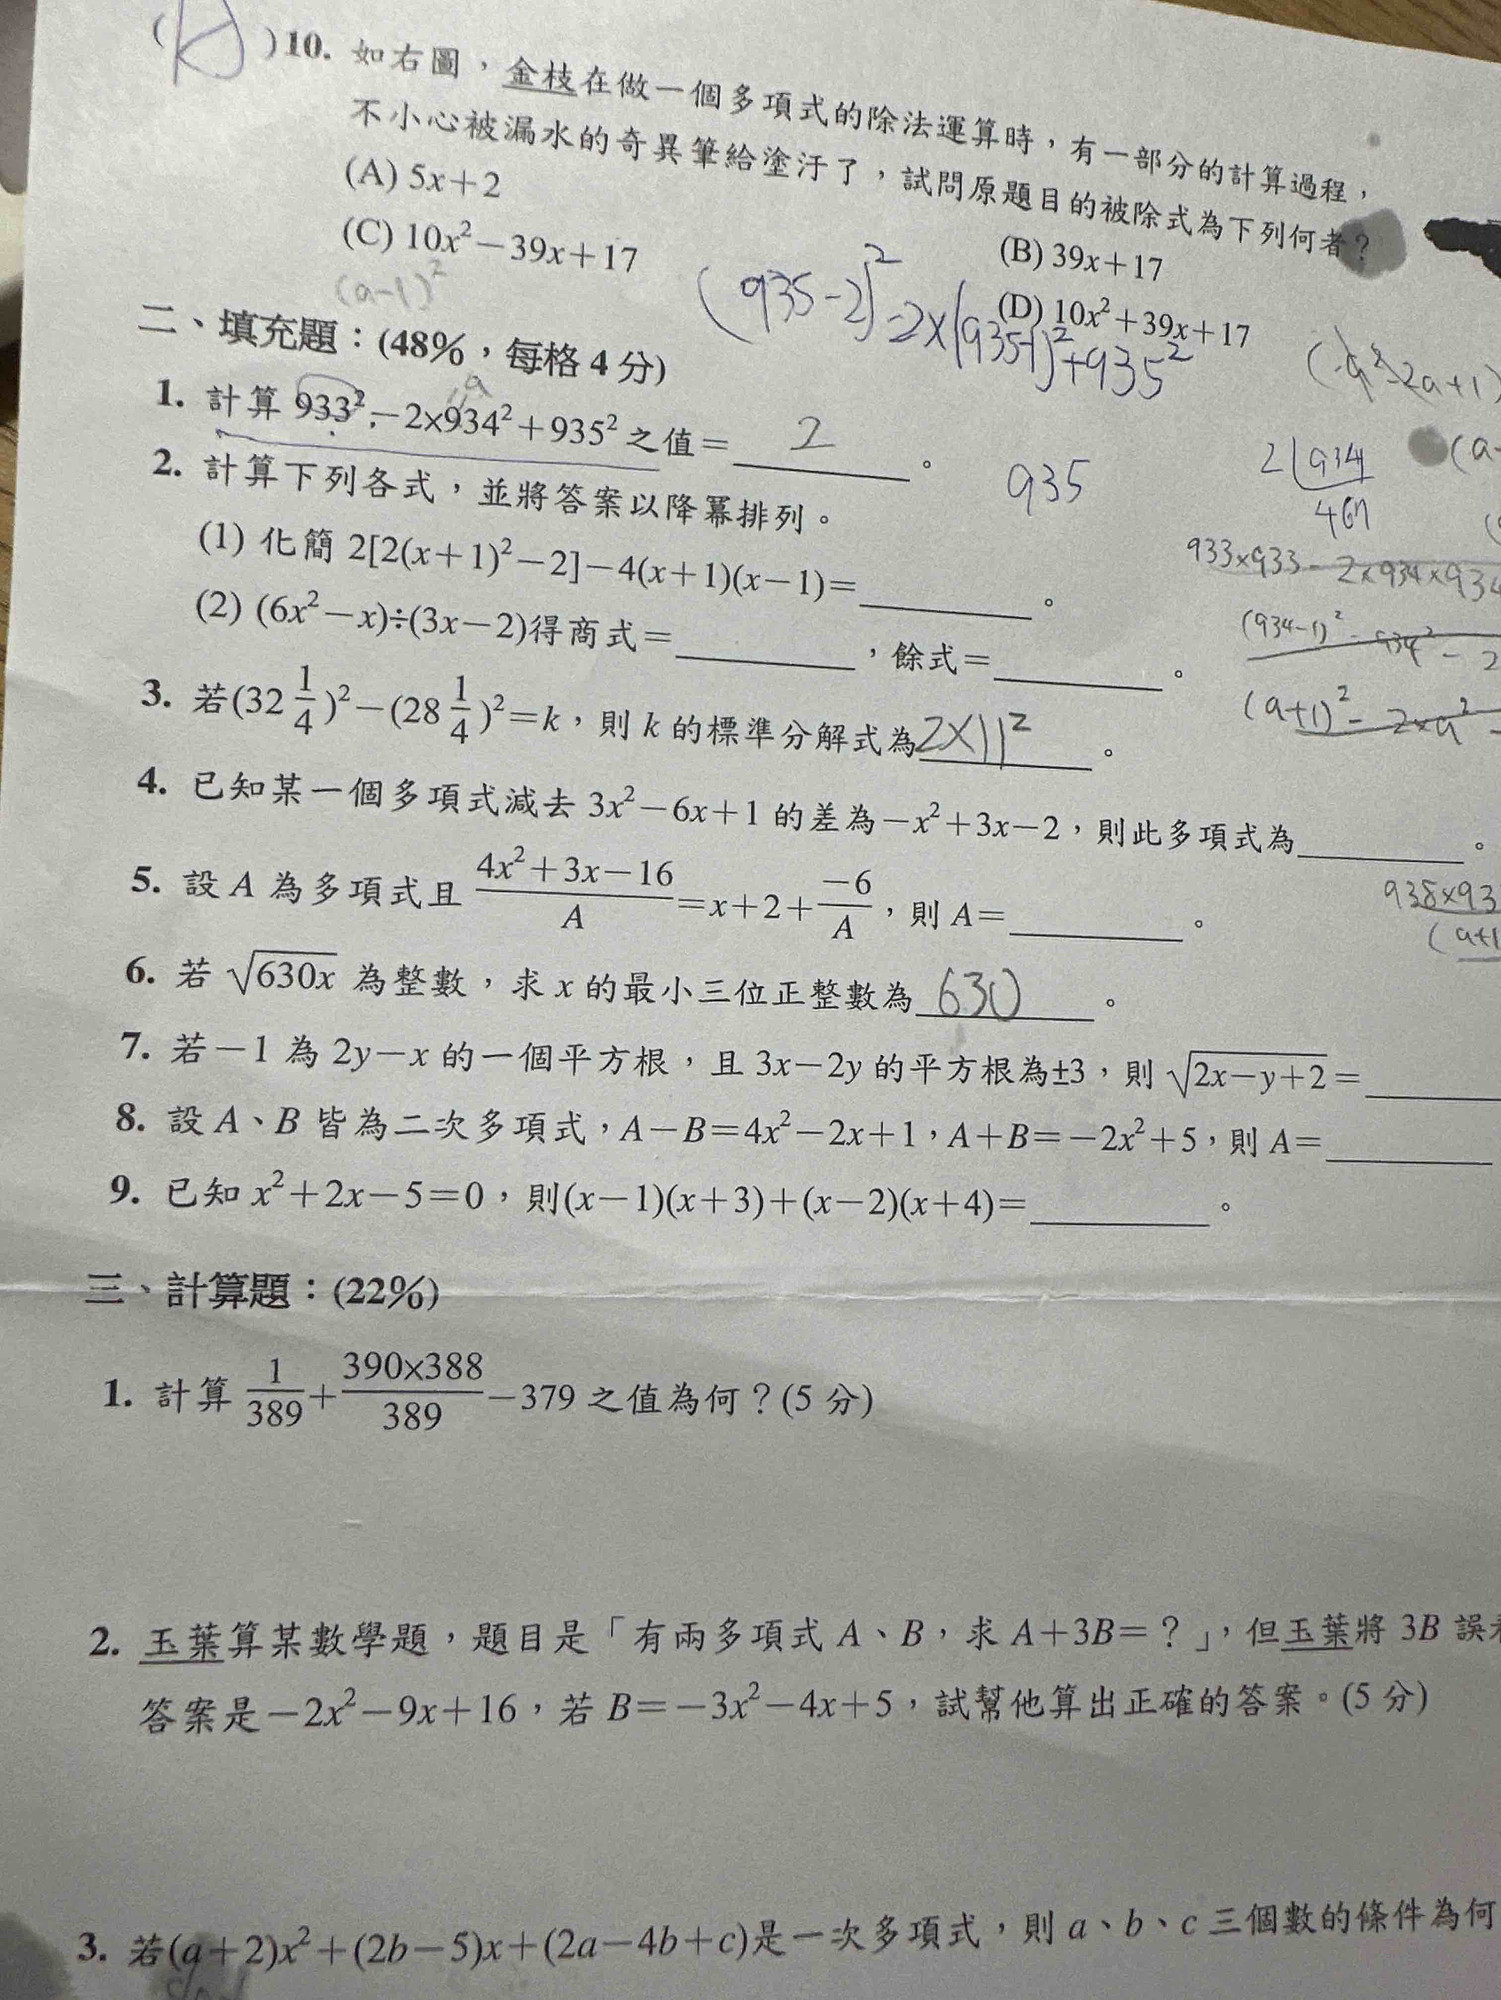 ( )10. 如右圖，金枝在做一個多項式的除法運算時，有一部分的計算過程，
不小心被漏水的奇異筆給塗汙了，試問原題目的被除式為下列何者？
(A) 5x＋2
(B) 39x＋17
(C) 10x²－39x＋17
(D) 10x²＋39x＋17
(a-1)²
(935-2)²-2×(935-1)²+935²
二、填充題：(48%，每格 4 分)
1. 計算 933²－2×934²＋935² 之值＝ 2 。
935
2. 計算下列各式，並將答案以降冪排列。
(1) 化簡 2[2(x＋1)²－2]－4(x＋1)(x－1)＝ 。
(2) (6x²－x)÷(3x－2)得商式＝ ，餘式＝ 。
3. 若(32 1/4)²－(28 1/4)²＝k，則 k 的標準分解式為 2×11² 。
4. 已知某一個多項式減去 3x²－6x＋1 的差為－x²＋3x－2，則此多項式為 。
5. 設 A 為多項式且 (4x²＋3x－16)/A ＝x＋2＋ －6/A，則 A＝ 。
6. 若 √630x 為整數，求 x 的最小三位正整數為 630 。
7. 若－1 為 2y－x 的一個平方根，且 3x－2y 的平方根為±3，則 √2x－y＋2＝
8. 設 A、B 皆為二次多項式，A－B＝4x²－2x＋1，A＋B＝－2x²＋5，則 A＝
9. 已知 x²＋2x－5＝0，則(x－1)(x＋3)＋(x－2)(x＋4)＝ 。
三、計算題：(22%)
1. 計算 1/389＋390×388/389－379 之值為何？(5 分)
2. 玉葉算某數學題，題目是「有兩多項式 A、B，求 A＋3B＝？」，但玉葉將 3B 誤
答案是－2x²－9x＋16，若 B＝－3x²－4x＋5，試幫他算出正確的答案。(5 分)
3. 若(a＋2)x²＋(2b－5)x＋(2a－4b＋c)是一次多項式，則 a、b、c 三個數的條件為何